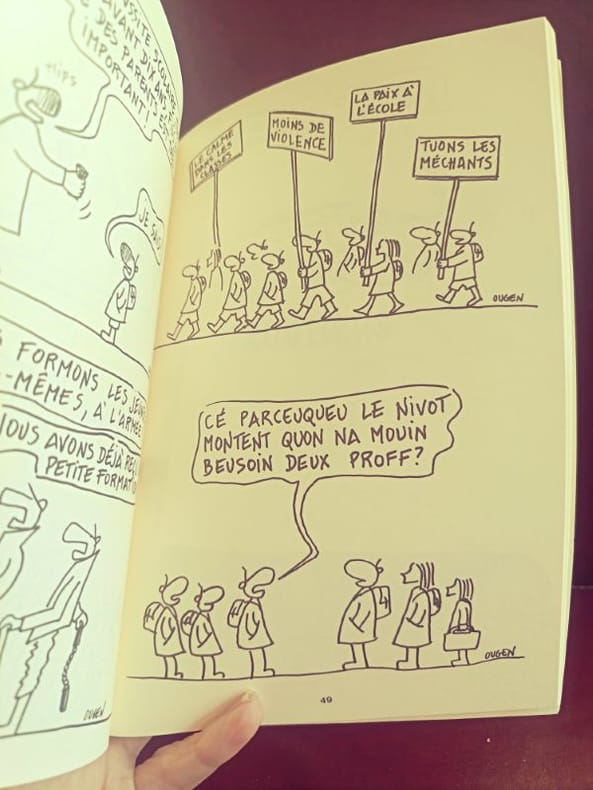 SSITE SCOLAIRE
AVANT DIX ANS
DES PARENTS EST
IMPORTANT!
HIPS
JE SUIS
FORMONS LES JEU
-MÊMES, À L'ARMÉE
NOUS AVONS DÉJÀ
PETITE FORMAT
OUGEN
LE CALME
DANS LES
CLASSES
MOINS DE
VIOLENCE
LA PAIX À
L'ÉCOLE
TUONS LES
MÉCHANTS
OUGEN
CÉ PARCEUQUEU LE NIVOT
MONTENT QUON NA MOUIN
BEUSOIN DEUX PROFF?
OUGEN
49